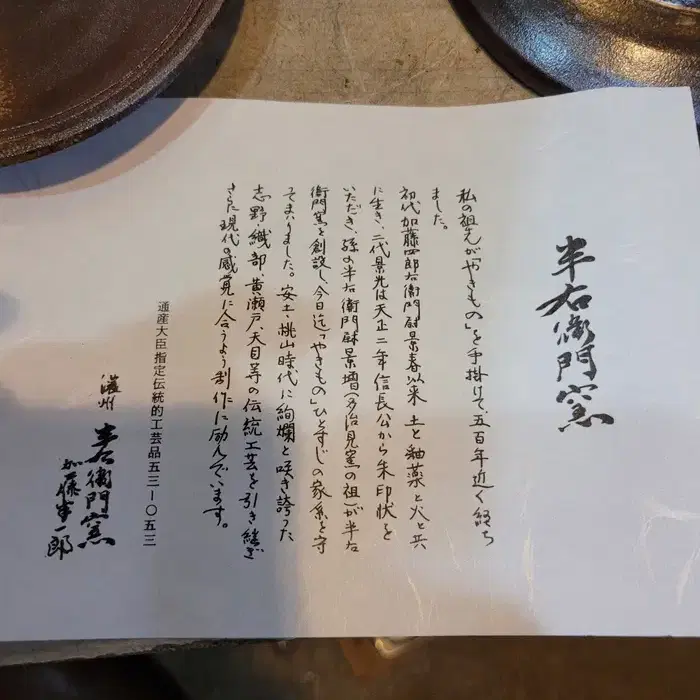 半右衛門窯
私の祖先が「やきもの」を手掛けて五百年近く経ち
ました。
初代加藤四郎右衛門尉景春以来 土と釉薬と火と共
に生き、二代景光は天正二年信長公から朱印状を
いただき、孫の半右衛門尉景増(多治見窯の祖)が半右
衛門窯を創設し、今日迄「やきもの」ひとすじの家系を守
ってまいりました。安土、桃山時代に絢爛と咲き誇った
志野織部、黄瀬戸、天目等の伝統工芸を引き継ぎ
さらに現代の感覚に合うよう制作に励んでいます。
通産大臣指定伝統的工芸品五三一〇五三
濃州 半右衛門窯
加藤 一郎